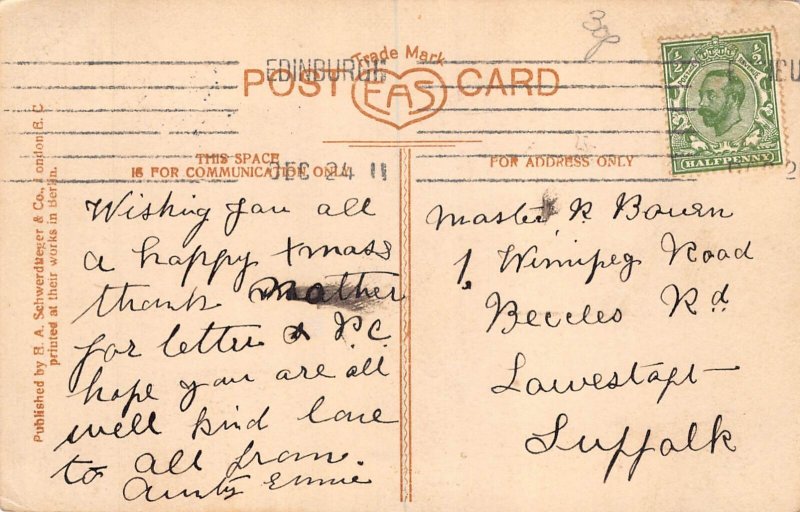 30p
EDINBURGH
Trade Mark
POST CARD
EAS
HALFPENNY
THIS SPACE
IS FOR COMMUNICATION ONLY
DEC 24 11
FOR ADDRESS ONLY
Published by E. A. Schwerdtfeger & Co., London E. C.
printed at their works in Berlin.
Wishing you all
a happy Xmass
thank Mother
for letter & P.C.
hope you are all
well kind love
to all from
Aunty Ennie
Master R Bourn
1, Winnipeg Road
Beccles Rd
Lowestoft
Suffolk